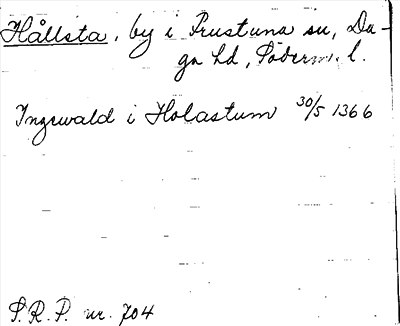 Hållsta, by i Frustuna sn, Da-
ga hd, Söderm. l.
Ingewald i Holastum 30/5 1366
S.R.P. nr. 704